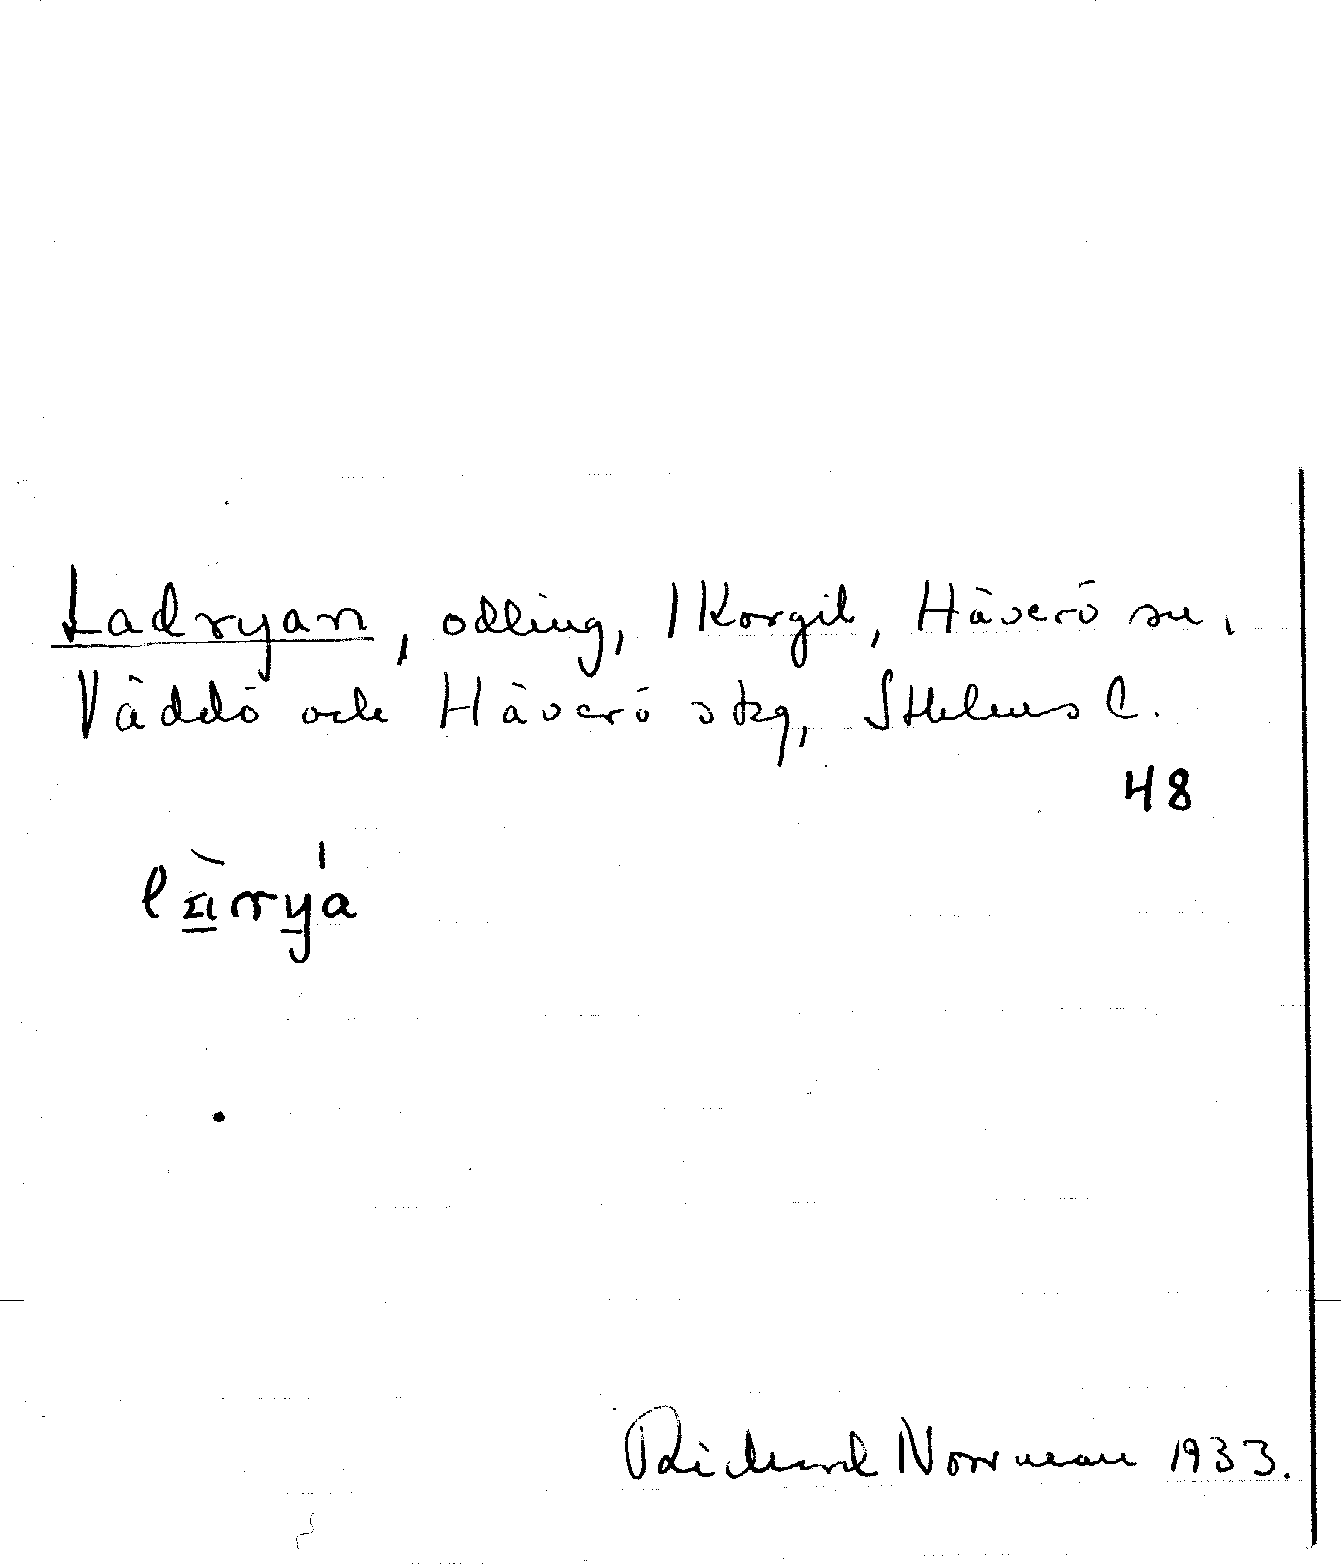 Ladryan, odling, 1 Korgil, Häverö sn.
Väddö och Häverö skg, Sthlms l.
48
Richard Norrman 1933.